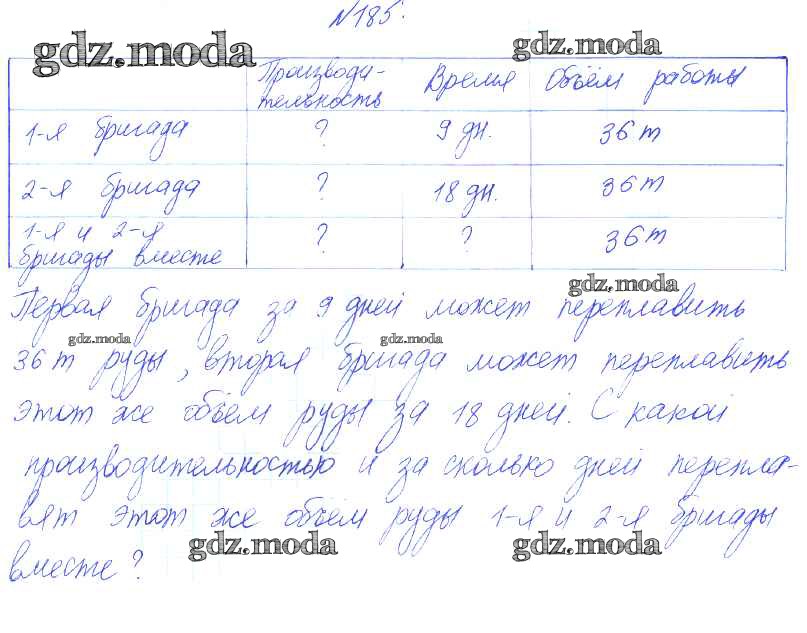 №185.
gdz.moda
gdz.moda
Производи-
тельность
Время
Объём работы
1-я бригада
?
9 дн.
36 т
2-я бригада
?
18 дн.
36 т
1-я и 2-я
бригады вместе
?
?
36 т
gdz.moda
Первая бригада за 9 дней может переплавить
gdz.moda
gdz.moda
36 т руды, вторая бригада может переплавить
этот же объём руды за 18 дней. С какой
производительностью и за сколько дней перепла-
вят этот же объём руды 1-я и 2-я бригады
gdz.moda
gdz.moda
вместе?